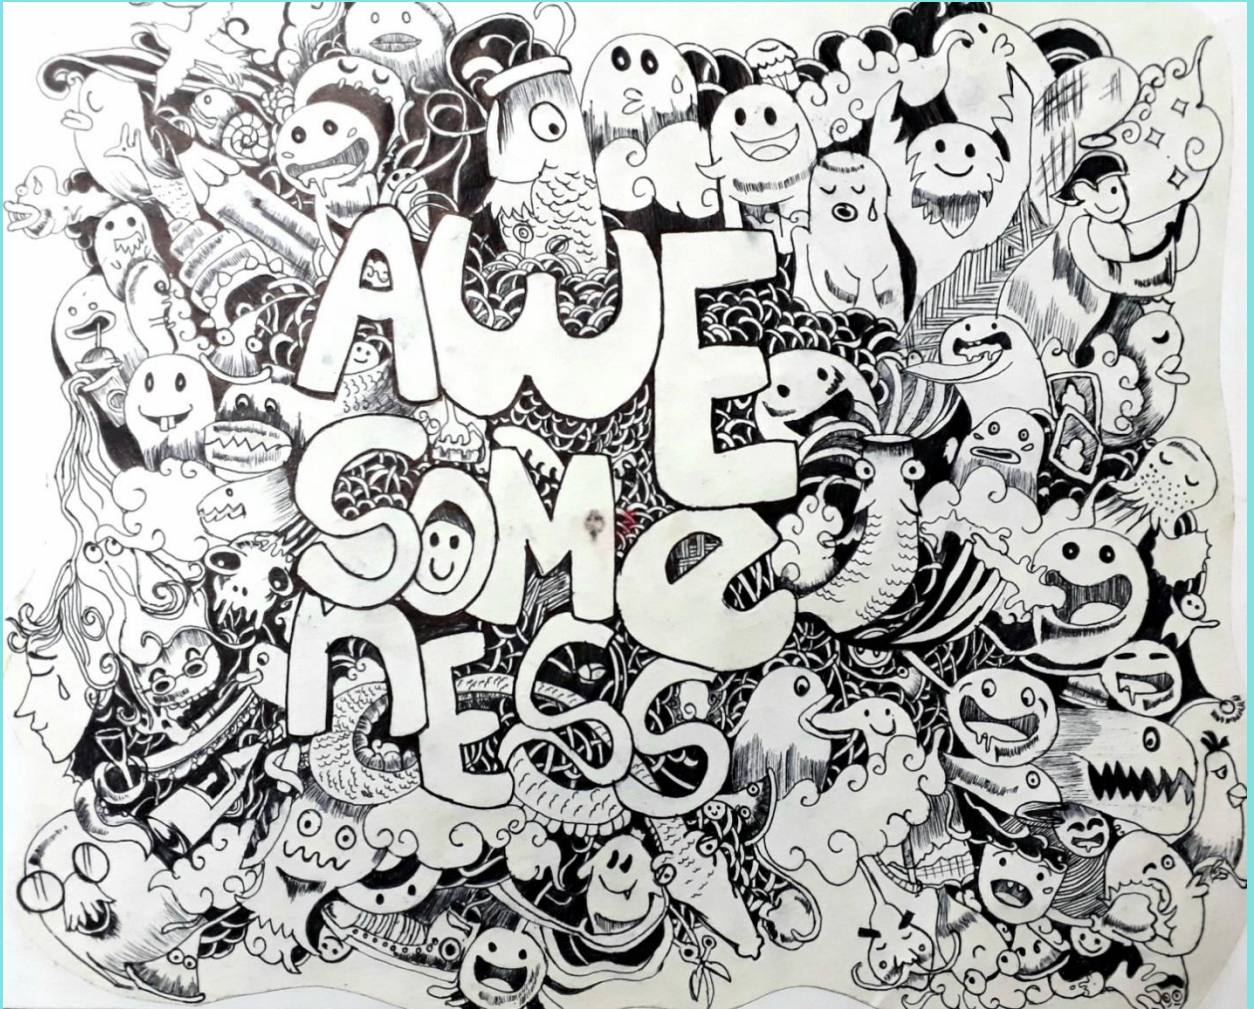 AWE
SOMe
nESS